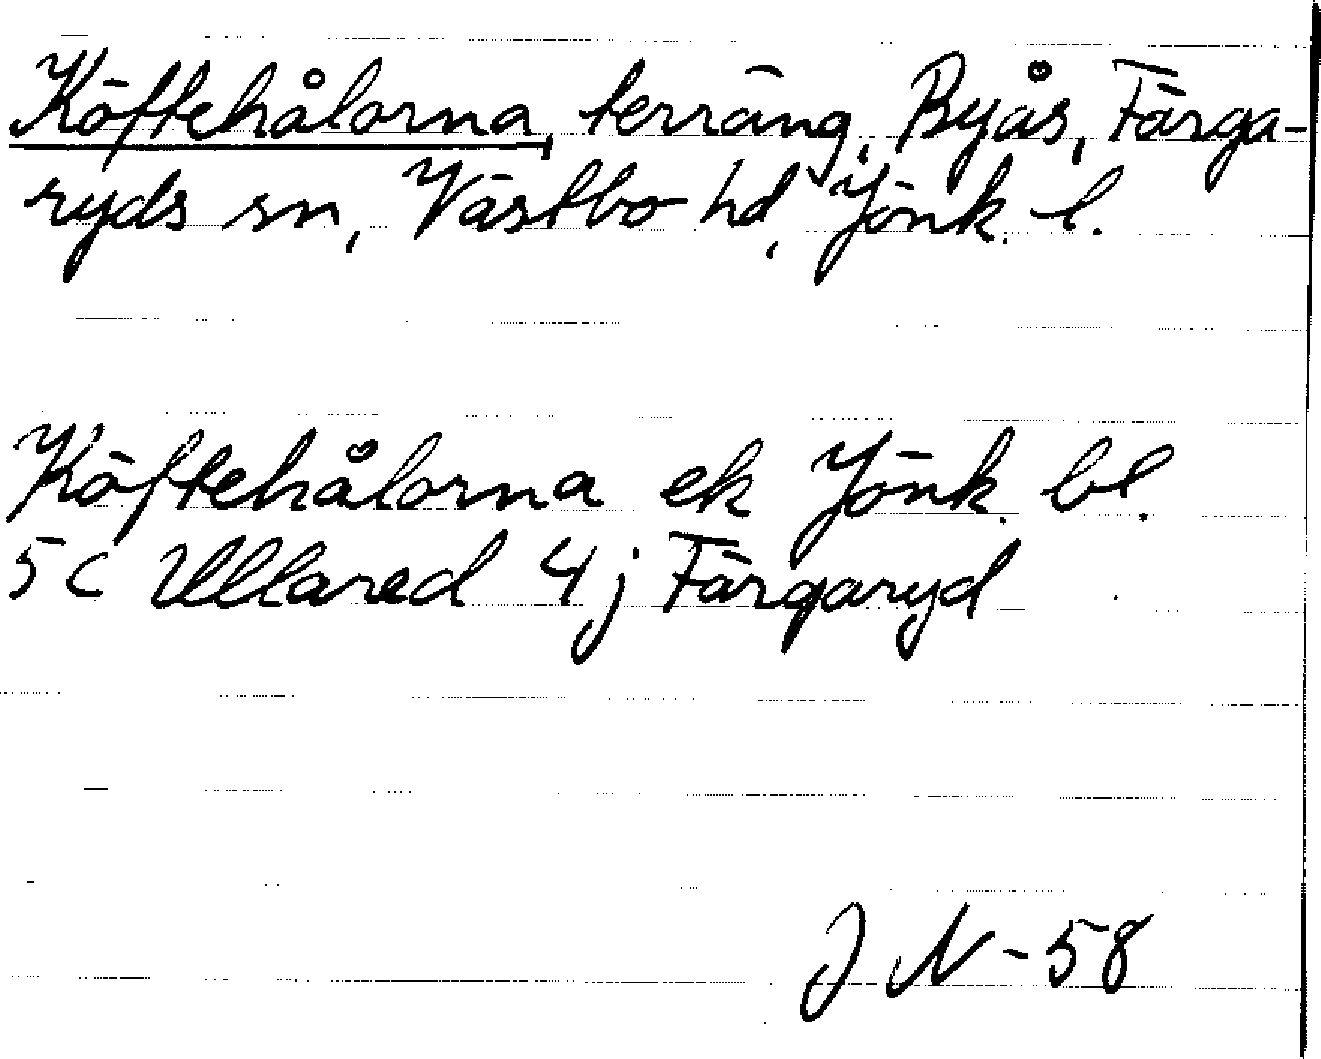 Köftehålorna, terräng, Byås, Färga-
ryds sn, Västbo hd, Jönk. l.
Köftehålorna ek Jönk. bl.
5 C Ullared 4 j Färgaryd
J N - 58